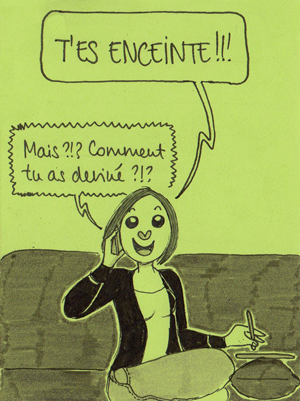 T'ES ENCEINTE!!!
Mais?!? Comment
tu as deviné?!?